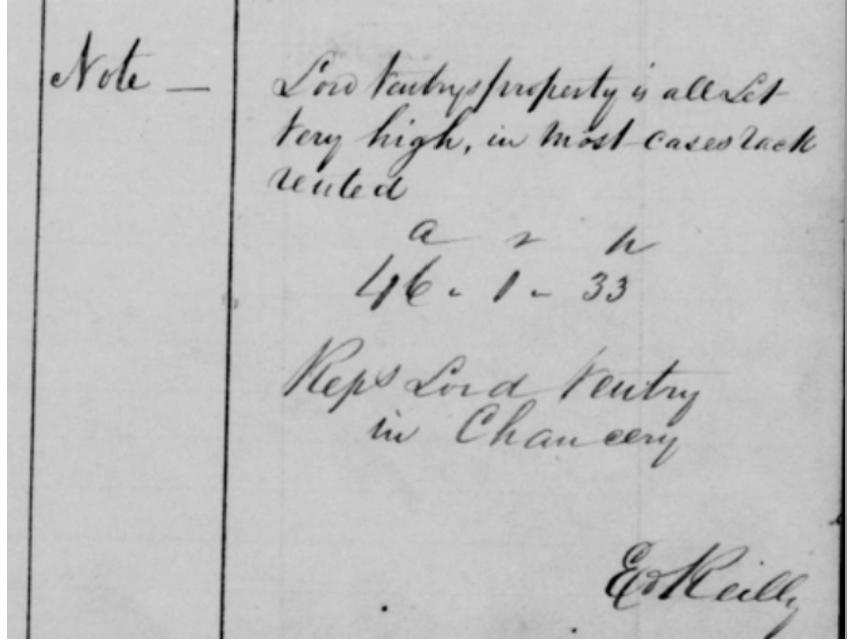 Note —
Lord Ventrys property is all Let
Very high, in most cases rack
rented
a r p
46 - 1 - 33
Reps Lord Ventry
in Chancery
E O Reilly